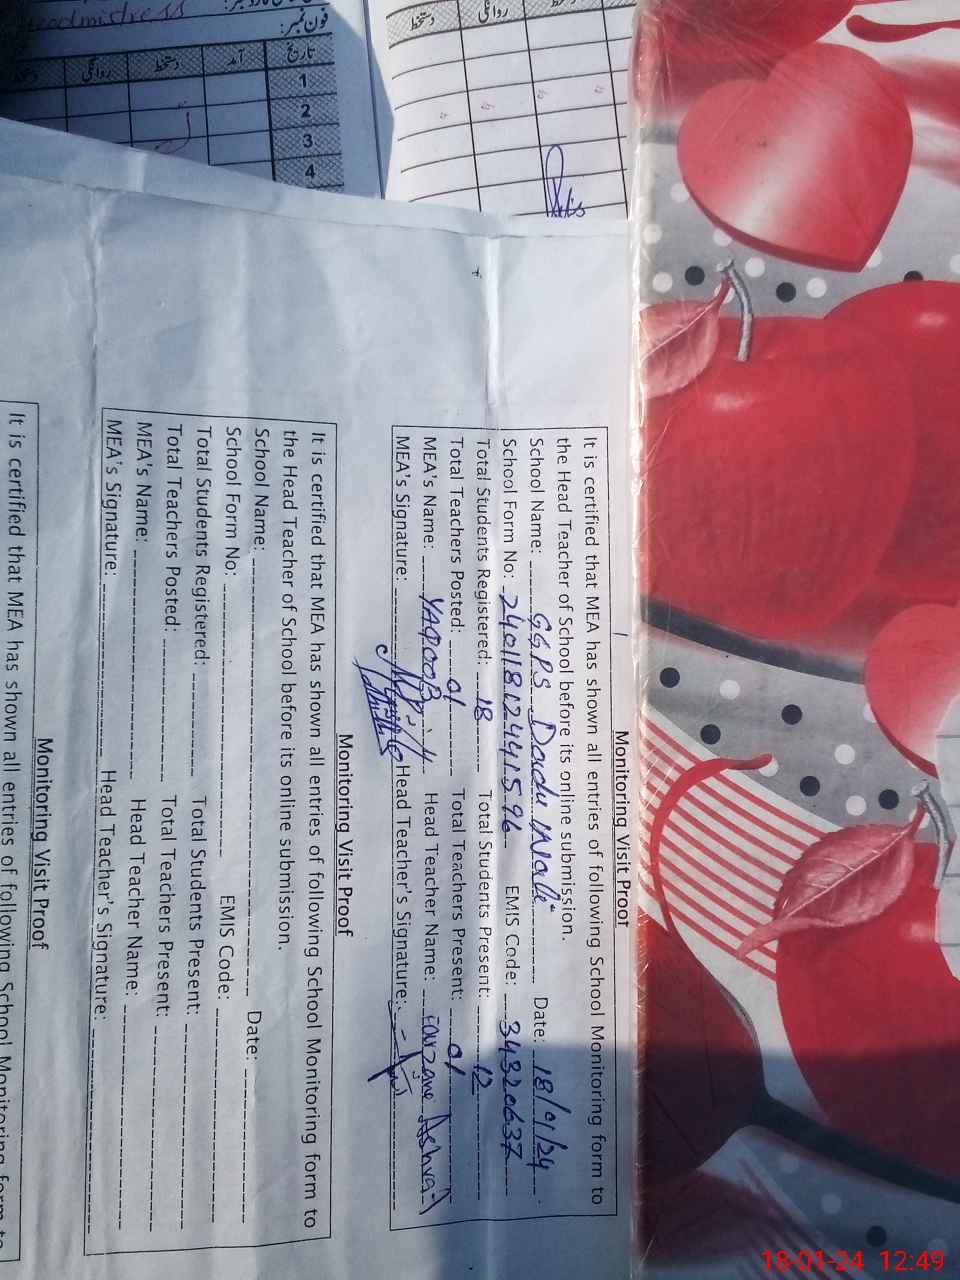 Headmistress
فون نمبر:
تاریخ آمد دستخط روانگی دستخط
1
2
3
4
دستخط روانگی دستخط
Monitoring Visit Proof
It is certified that MEA has shown all entries of following School Monitoring form to
the Head Teacher of School before its online submission.
School Name: GGPS Dadu Wali Date: 18/01/24
School Form No: 24011812441596 EMIS Code: 34320637
Total Students Registered: 18 Total Students Present: 12
Total Teachers Posted: 01 Total Teachers Present: 01
MEA's Name: YAQOOB Head Teacher Name: Farzana Ashraf
MEA's Signature: Head Teacher's Signature:
Monitoring Visit Proof
It is certified that MEA has shown all entries of following School Monitoring form to
the Head Teacher of School before its online submission.
School Name: Date:
School Form No: EMIS Code:
Total Students Registered: Total Students Present:
Total Teachers Posted: Total Teachers Present:
MEA's Name: Head Teacher Name:
MEA's Signature: Head Teacher's Signature:
Monitoring Visit Proof
It is certified that MEA has shown all entries of following School Monitoring form to
18-01-24 12:49